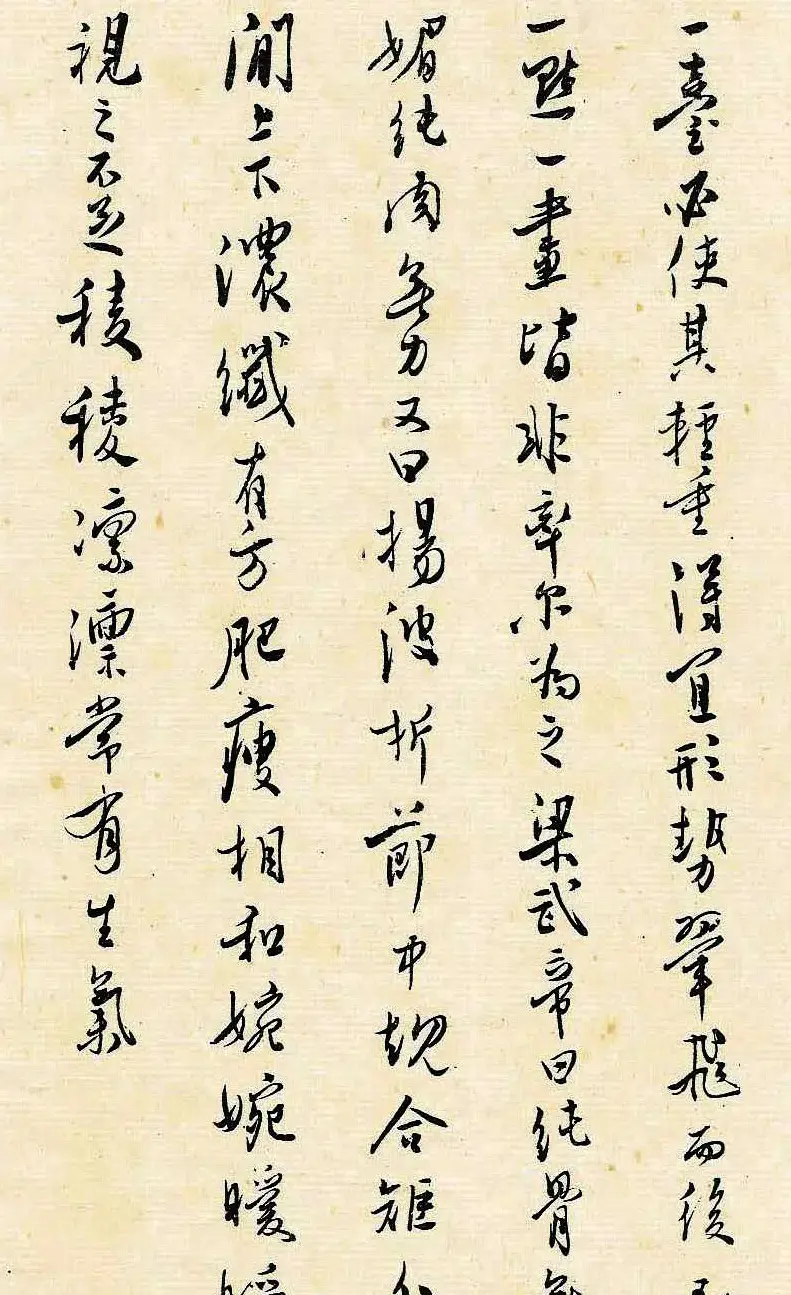 一臺必使其輕重得宜形勢翬飛而後
一點一畫皆非率尔為之梁武帝曰純骨無
媚純肉無力又曰揚波折節中規合矩分
間上下濃纖有方肥瘦相和婉婉曖曖
視之不足稜稜凛凛常有生氣